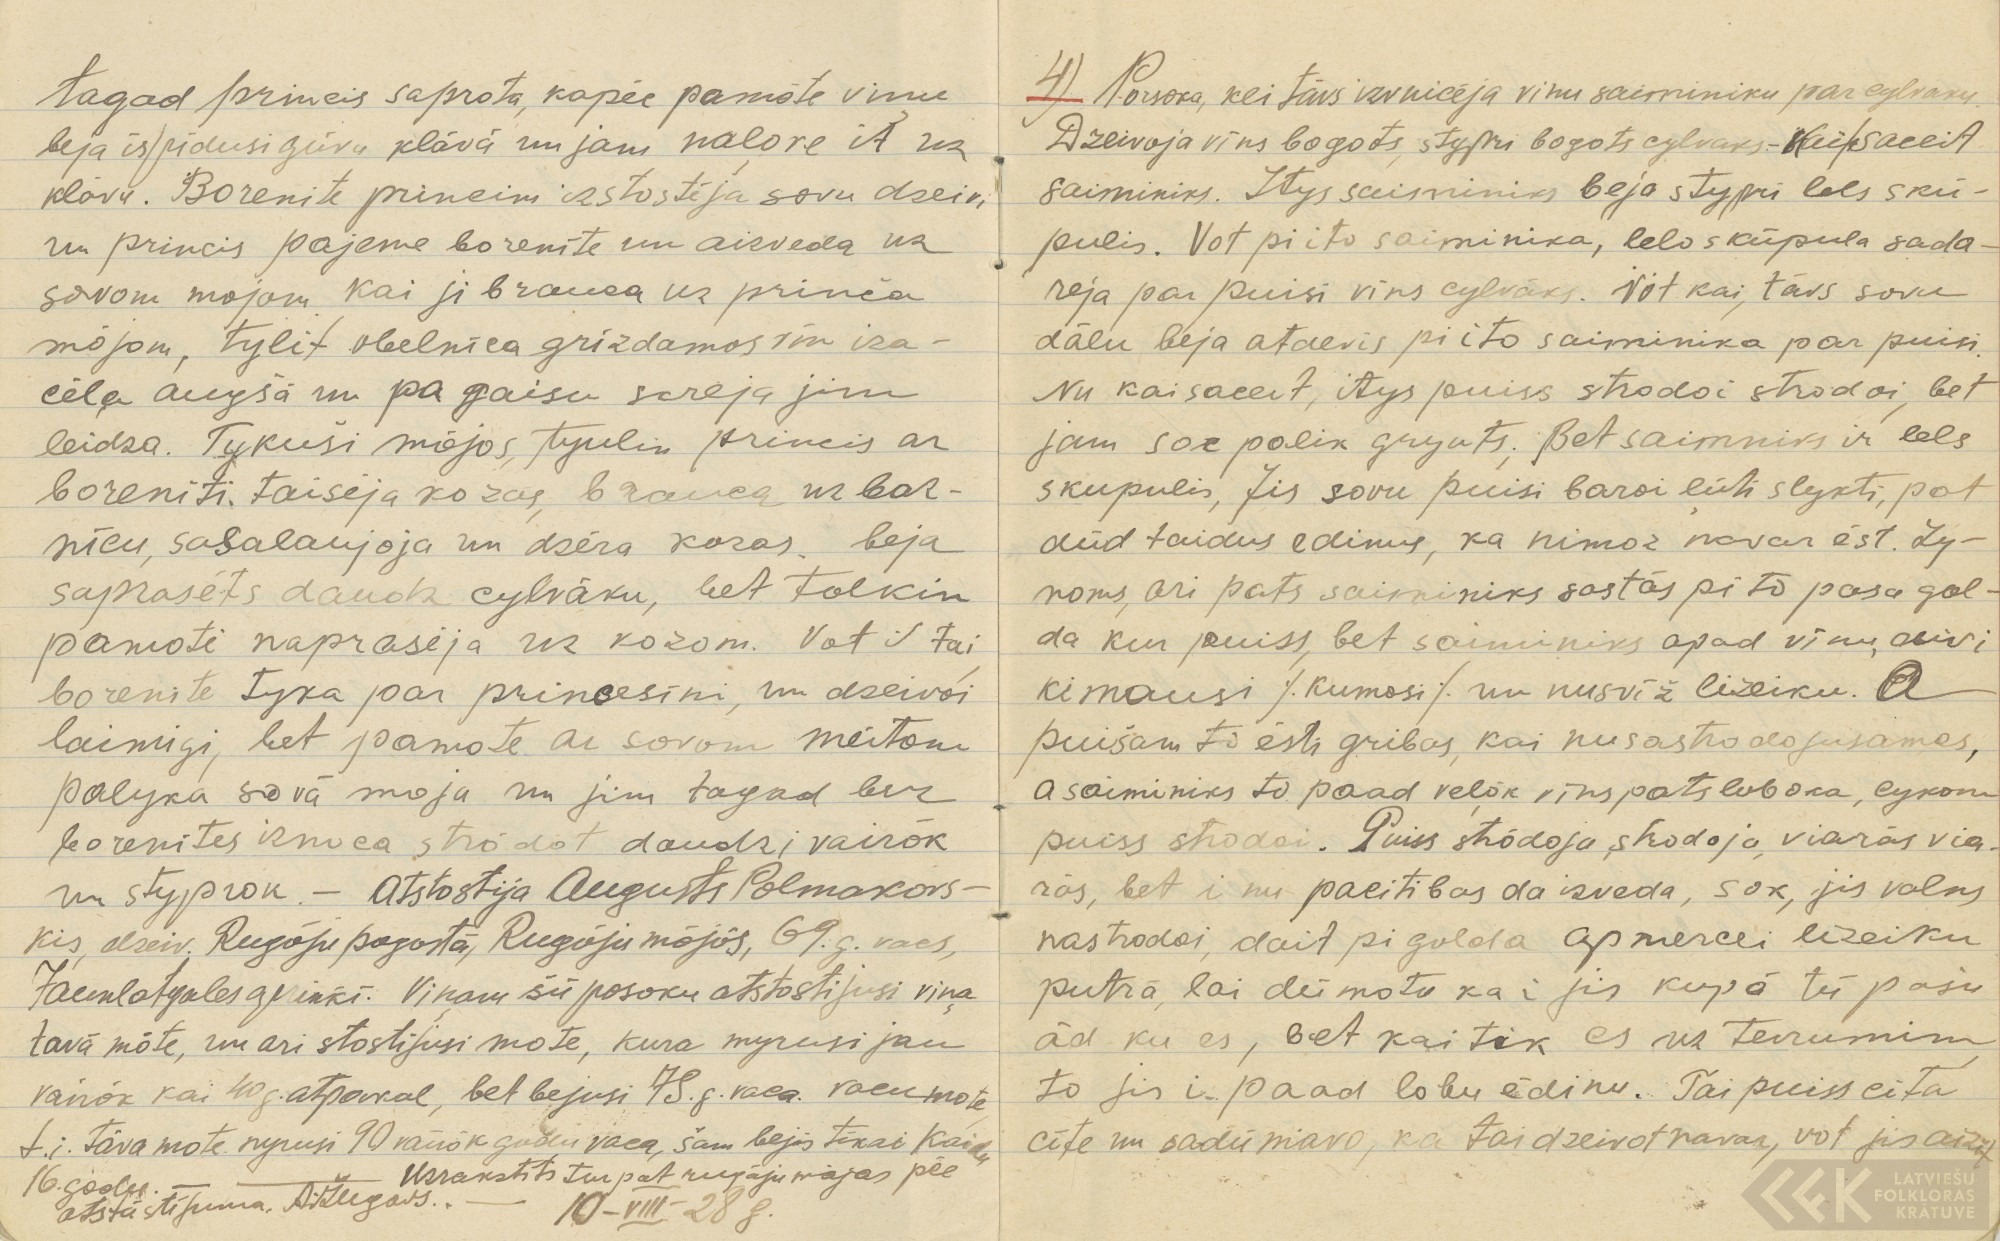 tagad princis saprota, kapēc pamōte vinu
beja īspīdusi gūvu klāvā un jam naļōve īt uz
klāvu. Borenite princim izstostēja sovu dzeivi
un princis pajeme borenīte un aizveda uz
sovom mojom. Kai ji brauca uz prinča
mōjom, tylit obelnīca grīzdamos vin iza-
cēla augšā un pa gaisu skreja jim
leidza. Tykuši mōjos, tyulin princis ar
boreniti taisēja kozas, brauca uz baz-
nīcu, sasalaujoja un dzēra kozas. beja
saprasēts daudz cylvāku, bet tolkin
pamoti naprasēja uz kozom. Vot i tai
borenite tyka par princesīni, un dzeivōi
laimigi, bet pamote ar sovom meitom
palyka sovā moja un jim tagad bez
borenites iznoca strōdōt daudzi vairōk
un styprok. — Atstostija Augusts Polmakovs-
kis, dzeiv. Rugōju pogostā, Rugōju mōjōs, 69. g. vacs,
Jaunlatgales apriņķī. Viņam šū posoku atstostijusi viņa
tavā mōte, un ari stostijusi mote, kura myrusi jau
vairōk kai 40 g. atpakaļ, bet bejusi 75. g. vaca. vacu mote
t.i. tāva mote myrusi 90 vairōk godu vaca, šam bejis tikai kaidu
16. godu. — Uzrakstīts turpat rugāju mājas pēc
atstāstijuma. A. Žugovs. — 10-VIII-28 g.
4) Porsoka, kei tāvs izvnicēja vinu saiminiku par cylvaku.
Dzeivoja vīns bogots, stypri bogots cylvaks. - Kai saceit
saiminiks. Itys saiminiks beja stypri lels skū-
pulis. Vot pi ito saiminika, lelo skūpula sada-
rēja par puisi vīns cylvāks. Vot kai, tāvs sovu
dālu beja atdevis pi ito saiminika par puisi.
Nu kai saceit, itys puiss strodoi strodoi, bet
jam soc palik gryuts. Bet saimniks ir lels
skupulis, Jis sovu puisi baroi ļūti slykti, pat
dūd taidus edinus, ka nimoz navar ēst. Zy-
noms, ari pats saiminiks sastās pi tō pasa gol-
da kur puiss, bet saiminiks apad vīnu, div i
kimausi /. kumosi /. un nusvīž lizeiku. A
puišam tō ēsti gribas, kai nusastrodojusamos,
a saiminiks to paad veļōk vīns pats loboka, cykom
puiss strodoi. Puiss strōdoja, strodoja, viarās via-
rās, bet i nu pacitibas da izveda, sok, jis valns
nastrodoi, dait pi golda apmercei lizeiku
putrā, lai dūmotu ka i jis kupā tū pošu
ād ku es, bet kai tik es uz teirumim,
to jis i paad lobu ēdinu. Tai puiss cita
cite un sadūmavo, ka tai dzeivot navar, vot jis aizit
LATVIEŠU
FOLKLORAS
KRĀTUVE